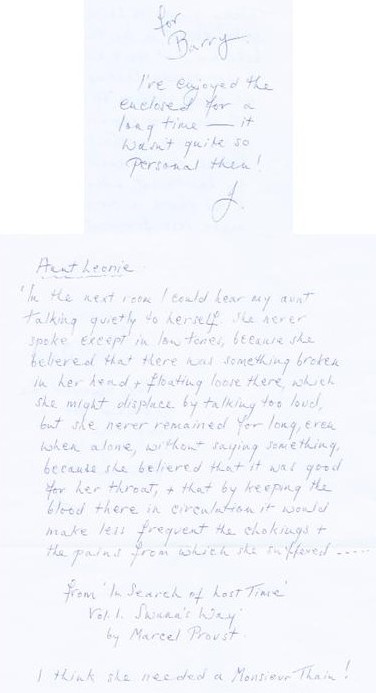 for
Barry
I've enjoyed the
enclosed for a
long time — it
wasn't quite so
personal then!
J.
Aunt Leonie
'In the next room I could hear my aunt
talking quietly to herself. She never
spoke except in low tones, because she
believed that there was something broken
in her head + floating loose there, which
she might displace by talking too loud,
but she never remained for long, even
when alone, without saying something,
because she believed that it was good
for her throat, + that by keeping the
blood there in circulation it would
make less frequent the chokings +
the pains from which she suffered.....
from 'In Search of Lost Time'
Vol. 1. Swann's Way
by Marcel Proust.
I think she needed a Monsieur Thain!